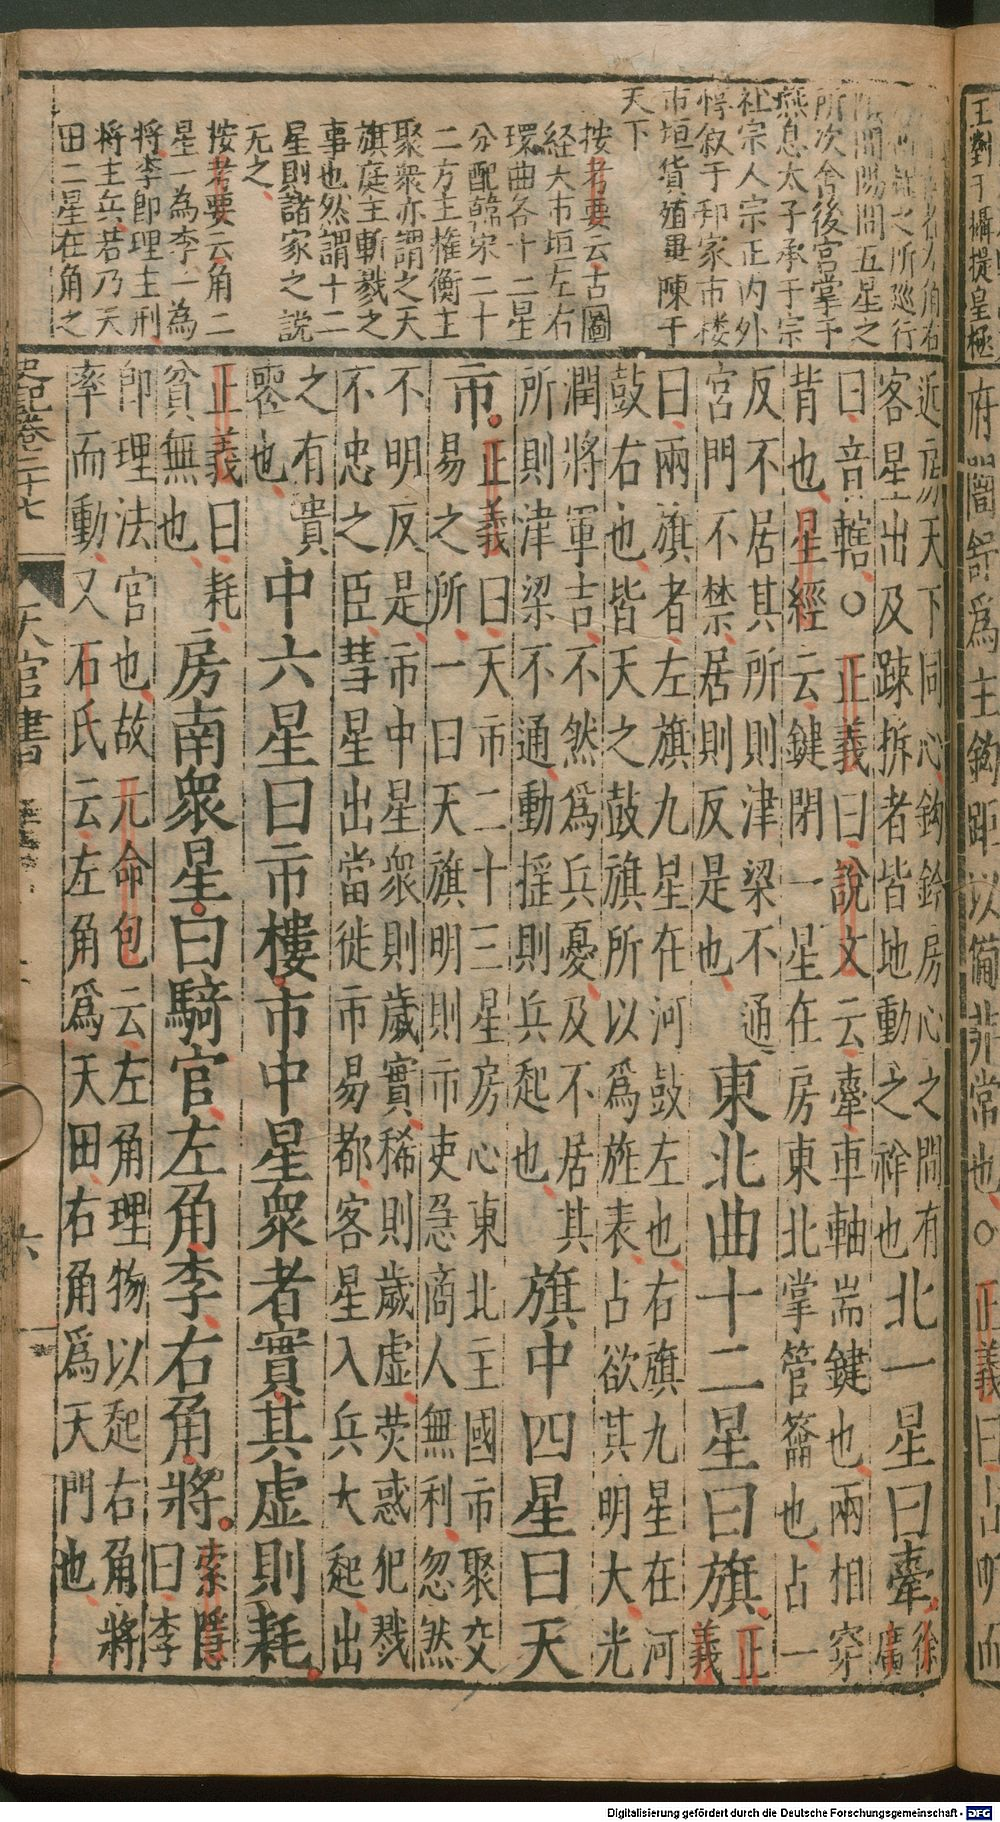 之所巡行
陰間陽間五星之
所次舍後宮掌于
燕息太子承于宗
社宗人宗正内外
惇敘于邦家市楼
市垣貨殖畢陳于
天下
按考要云古圖
経大市垣左右
環曲各十二星
分配韓宋二十
二方主權衡主
聚衆亦謂之天
旗庭主斬戮之
事也然謂十二
星則諸家之說
无之
按考要云角二
星一為李一為
將李即理主刑
將主兵若乃天
田二星在角之
王對于攝提皇極
為主鈎距以備非常也○正義曰
近房天下同心鈎鈐房心之間有
客星出及踈拆者皆地動之祚也
北一星曰舝
徐
廣
曰音轄○正義曰說文云舝車軸耑鍵也兩相穿
背也星經云鍵閉一星在房東北掌管籥也占一
反不居其所則津梁不通
宮門不禁居則反是也
東北曲十二星曰旗
正
義
曰兩旗者左旗九星在河鼓左也右旗九星在河
鼓右也皆天之鼓旗所以爲旌表占欲其明大光
潤將軍吉不然爲兵憂及不居其
所則津梁不通動摇則兵起也
旗中四星曰天
市
正義曰天市二十三星房心東北主國市聚交
易之所一曰天旗明則市吏急商人無利忽然
不明反是市中星衆則歲實稀則歲虛熒惑犯戮
不忠之臣彗星出當徙市易都客星入兵大起出
之有貴
喪也
中六星曰市樓市中星衆者實其虛則耗
正義曰耗
貧無也
房南衆星曰騎官左角李右角將
索隱
曰李
即理法官也故元命包云左角理物以起右角將
率而動又石氏云左角爲天田右角爲天門也
史記卷二十七 天官書 六
Digitalisierung gefördert durch die Deutsche Forschungsgemeinschaft - DFG